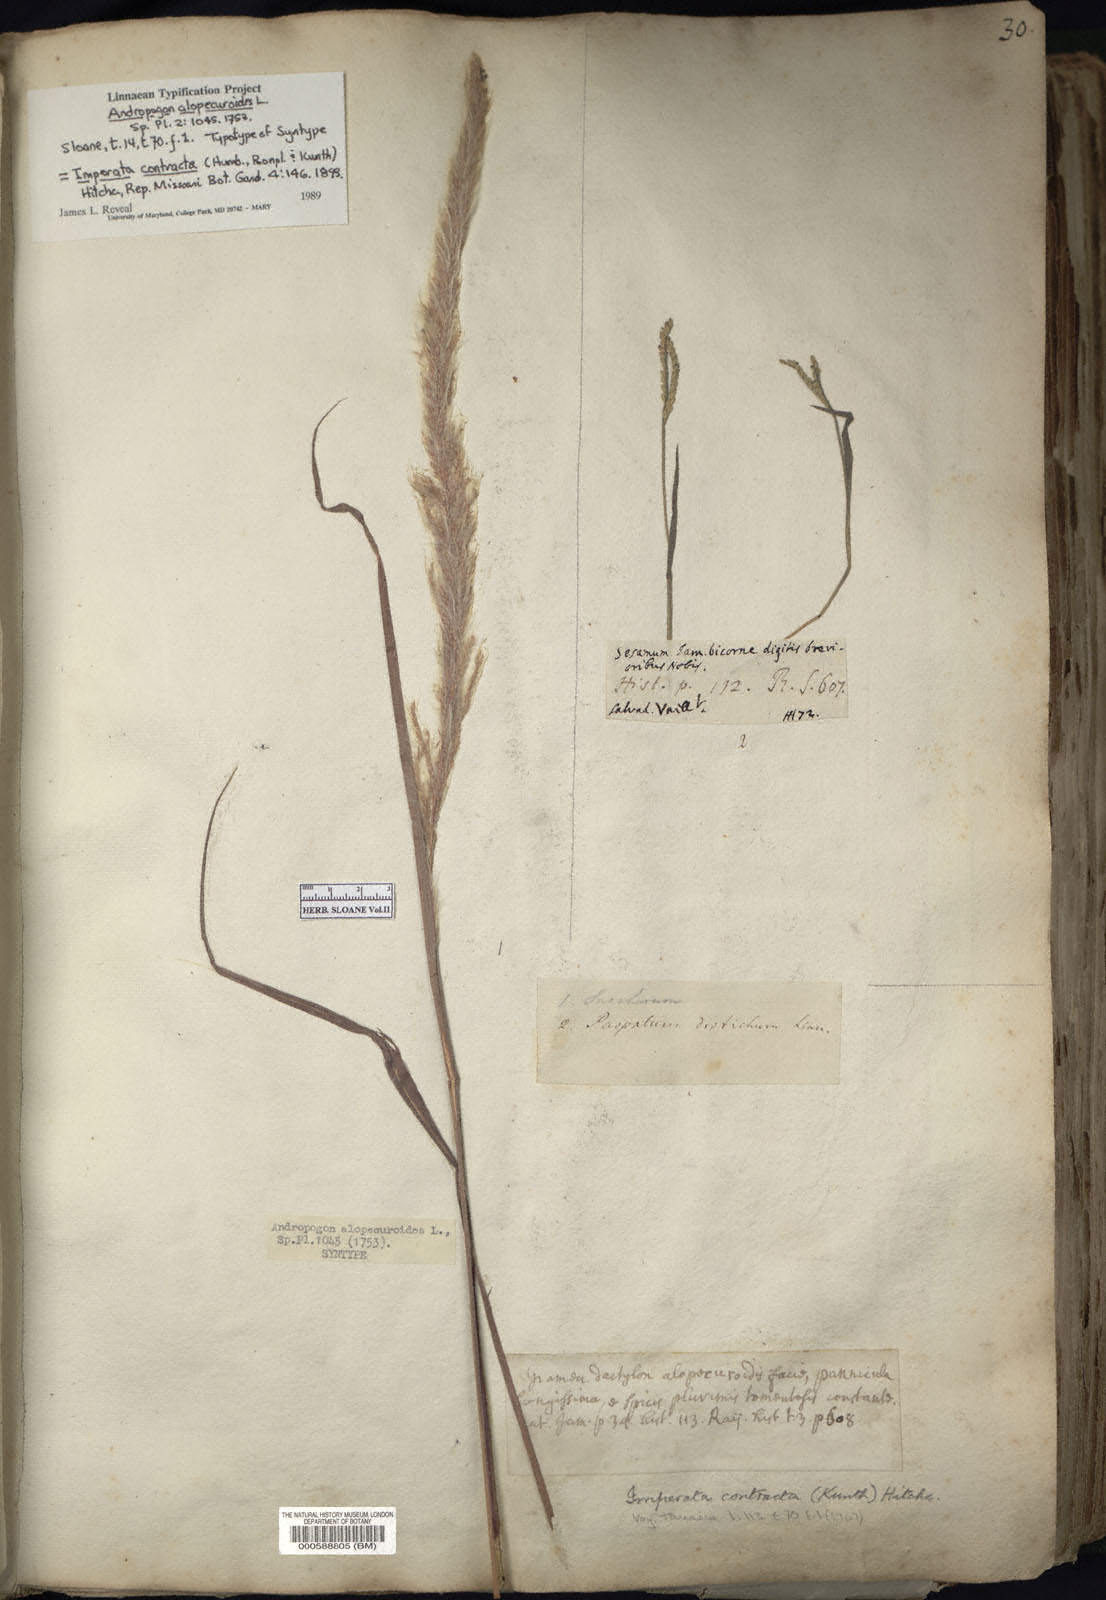 30.
Linnaean Typification Project
Andropogon alopecuroides L.
Sp. Pl. 2: 1045. 1753.
Sloane, t. 14, t. 70. f. 1. Typotype of Syntype
= Imperata contracta (Humb., Bonpl. & Kunth)
Hitchc., Rep. Missouri Bot. Gard. 4: 146. 1893.
James L. Reveal 1989
University of Maryland, College Park, MD 20742 - MARY
Sesamum Jam. bicorne digitis brevi-
oribus Nobis.
Hist. p. 112. R. S. 607.
Vaill. H172.
2
1 2 3
HERB. SLOANE Vol.II
1
1.
2. Paspalum distichum Linn.
Andropogon alopecuroides L.,
Sp.Pl.1045 (1753).
SYNTYPE
Gramen dactylon alopecuroidis facie, pannicula
longissima, e spicis plurimis tomentosis constante.
Cat. Jam. p 34. hist. 113. Raij. hist t. 3. p 608
Imperata contracta (Kunth) Hitchc.
Voy. Jamaica 1: 113 t 70 f.1 (1707)
THE NATURAL HISTORY MUSEUM, LONDON
DEPARTMENT OF BOTANY
000588805 (BM)